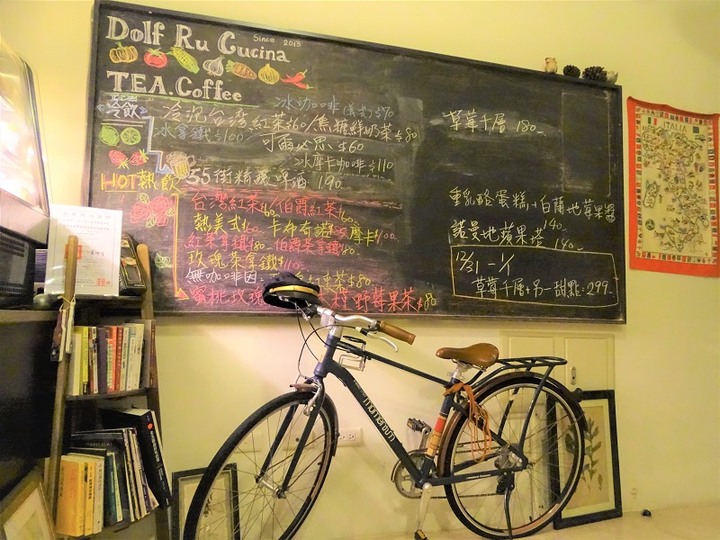 Dolf Ru Cucina Since 2015
TEA.Coffee
冷飲
冰咖啡(美式) $70
冷泡台灣紅茶$60/焦糖鮮奶茶$80
冰拿鐵$100
可爾必思 $60
冰摩卡咖啡$110
HOT熱飲
55街精釀啤酒 190.
台灣紅茶$60/伯爵紅茶$60.
熱美式$60 卡布奇諾 摩卡$100.
紅茶拿鐵$80 伯爵茶拿鐵$80
玫瑰茶拿鐵$110
無咖啡因 茶$80
蜜桃玫瑰 野莓果茶$80
草莓千層 180.
重乳酪蛋糕+白蘭地草莓醬 140.
諾曼地蘋果塔 140.
12/31-1/1
草莓千層+另一甜點:299.
ITALIA
momentum